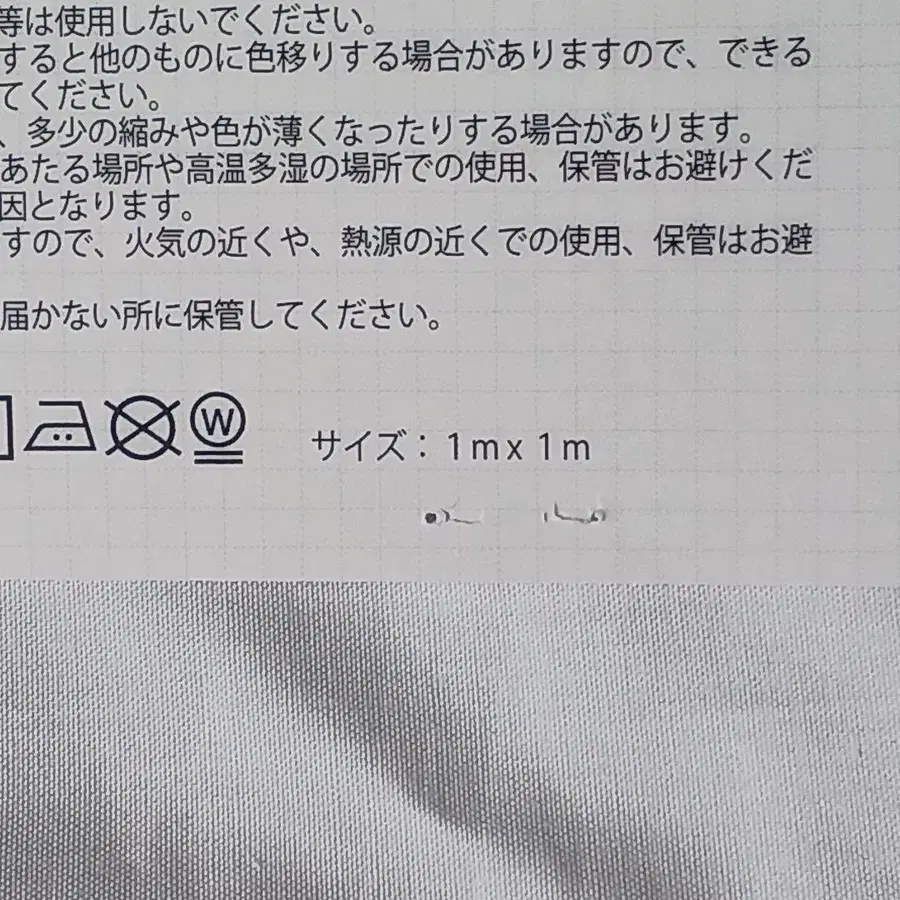 等は使用しないでください。
すると他のものに色移りする場合がありますので、できる
てください。
、多少の縮みや色が薄くなったりする場合があります。
あたる場所や高温多湿の場所での使用、保管はお避けくだ
因となります。
すので、火気の近くや、熱源の近くでの使用、保管はお避
届かない所に保管してください。
W
サイズ：1m x 1m